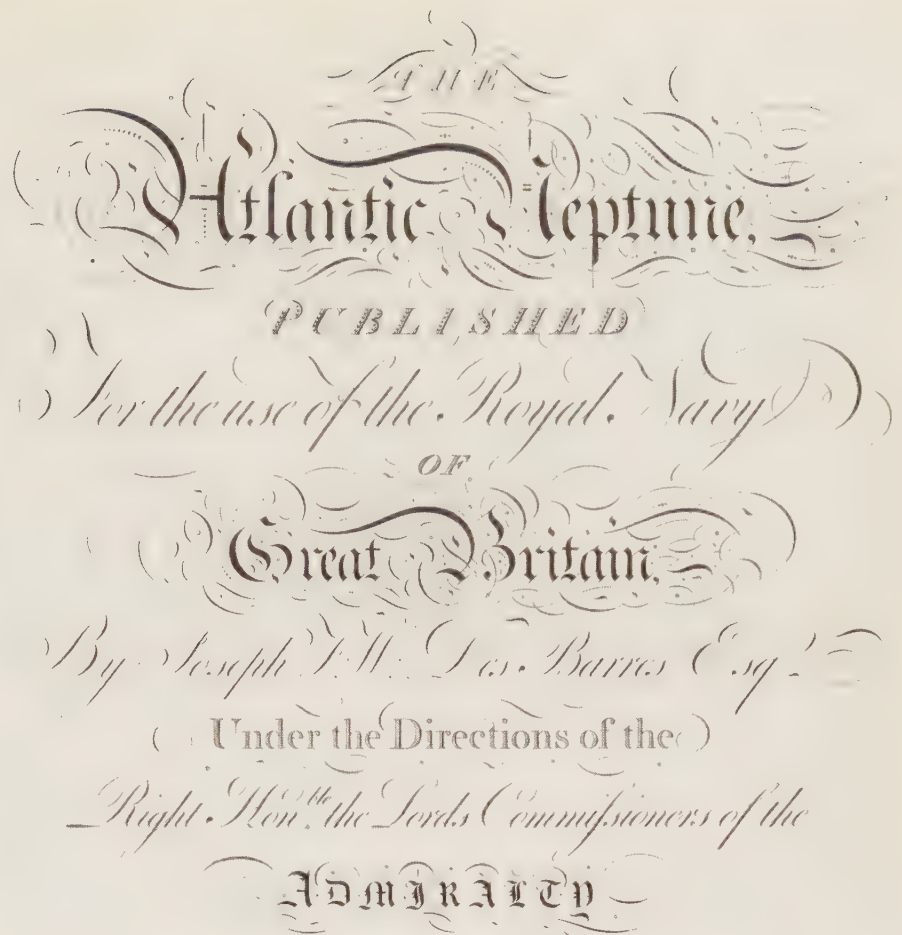 THE
Atlantic Neptune,
PUBLISHED
For the use of the Royal Navy
OF
Great Britain,
By Joseph F. W. Des Barres Esqr.
Under the Directions of the
Right Honble. the Lords Commiſsioners of the
ADMIRALTY